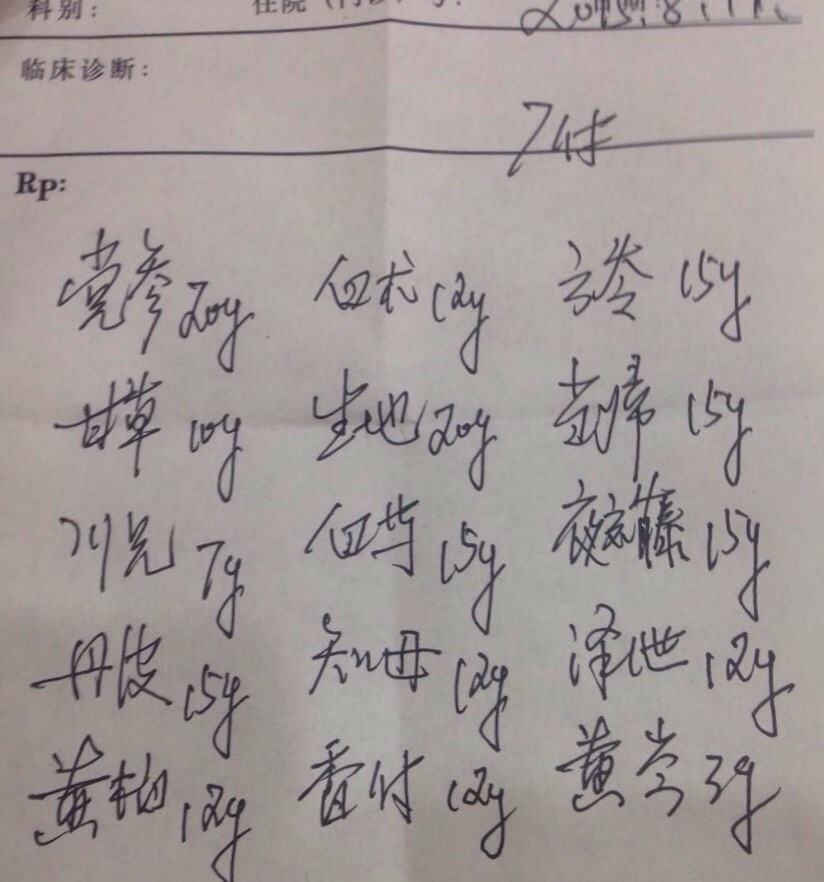 科别： 住院
2015.8.11.
临床诊断：
7付
Rp:
党参20g 白术12g 云苓15g
甘草10g 生地20g 当归15g
川芎7g 白芍15g 夜交藤15g
丹皮15g 知母12g 泽泻12g
黄柏12g 香付12g 黄芩3g